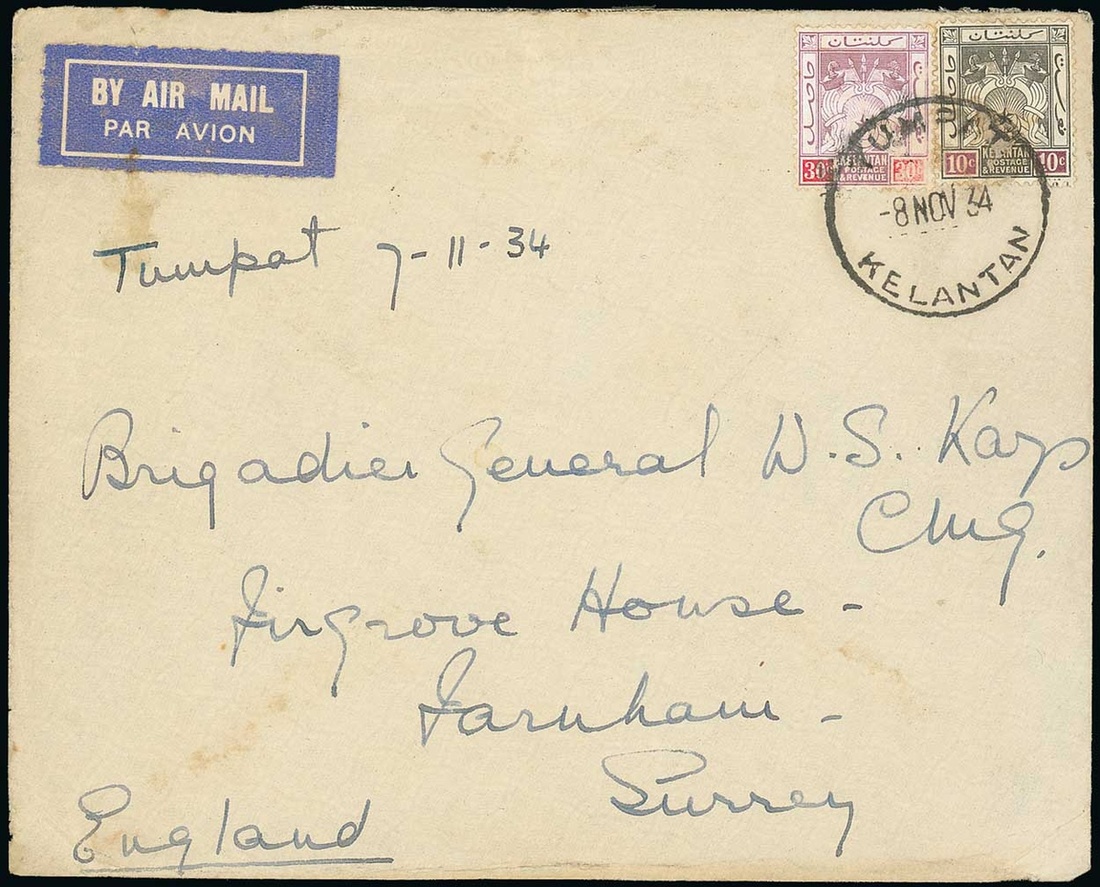 BY AIR MAIL
PAR AVION
كلنتان
30c
KELANTAN
POSTAGE
& REVENUE
30c
كلنتان
10c
KELANTAN
POSTAGE
& REVENUE
10c
TUMPAT
-8 NOV 34
KELANTAN
Tumpat 7-11-34
Brigadier General W. S. Kays
CMG.
Firgrove House -
Farnham -
Surrey
England